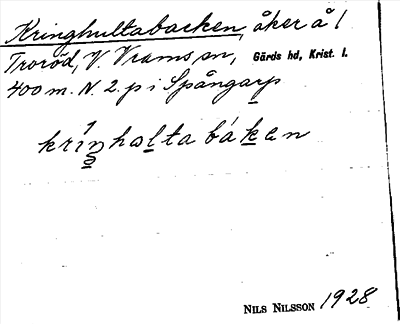 Kringhultabacken, åker å 1
Troröd, V. Vrams sn, Gärds hd, Krist. l.
400 m. N. 2. p i Spångarp
kriŋholtabáken
NILS NILSSON 1928